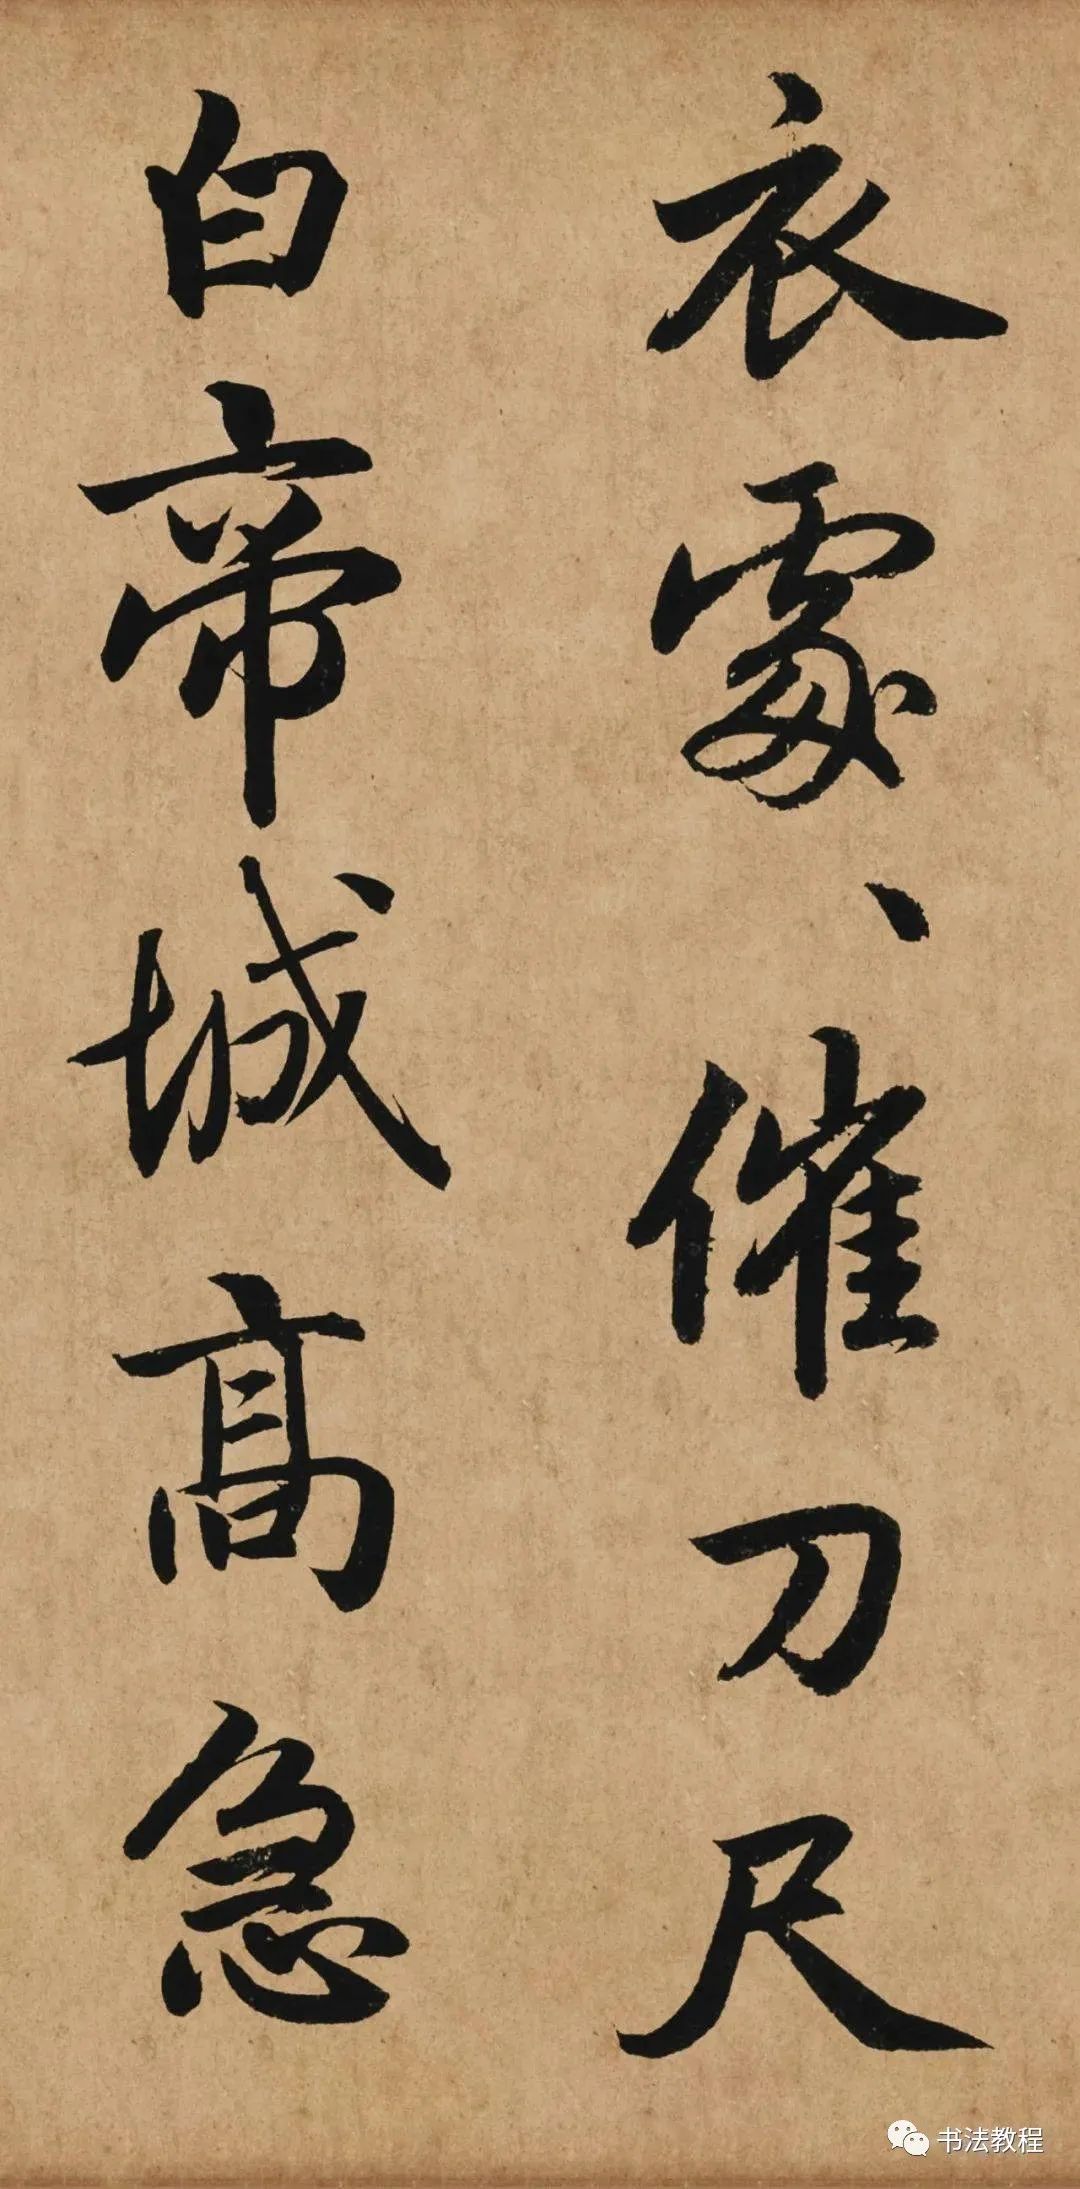 衣處、催刀尺
白帝城高急
书法教程